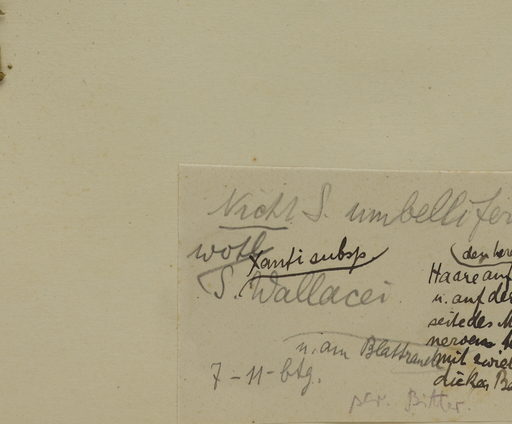 Nicht S. umbellifer
wohl Xanti subsp.
S. Wallacei
Haare auf
u. auf der
seite des M
nerven
mit zwei
dicken Ba
u. am Blattrande
7-11-btg.
Bitter.